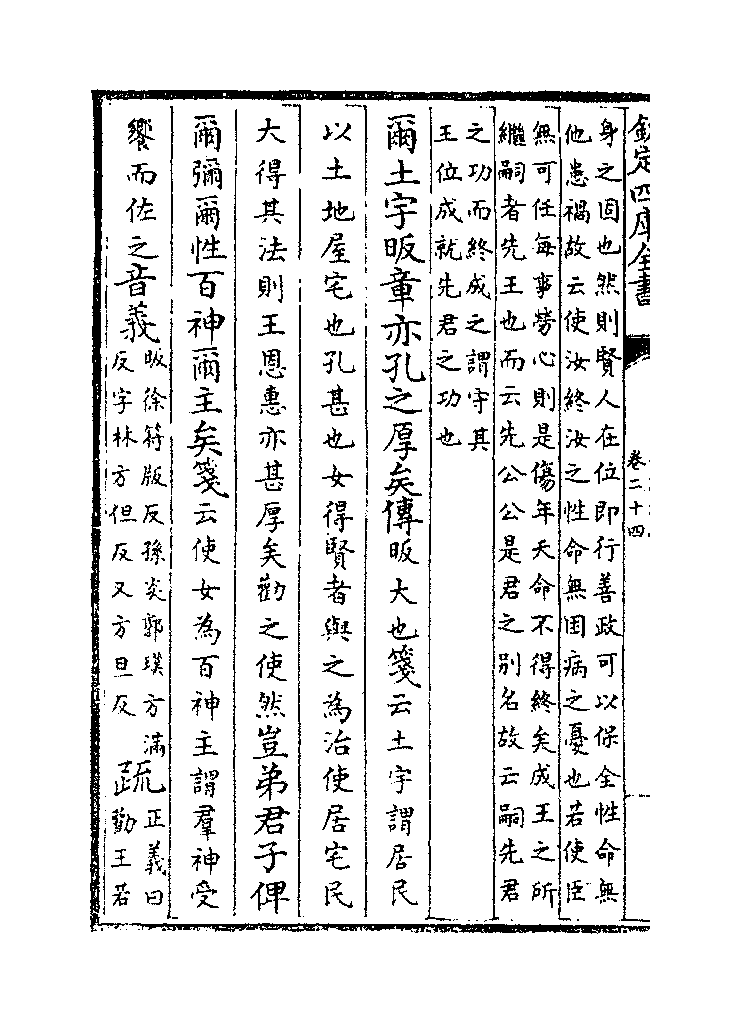 欽定四庫全書
卷二十四
身之固也然則賢人在位即行善政可以保全性命無
他患禍故云使汝終汝之性命無困病之憂也若使臣
無可任每事勞心則是傷年夭命不得終矣成王之所
繼嗣者先王也而云先公公是君之別名故云嗣先君
之功而終成之謂守其
王位成就先君之功也
爾土宇昄章亦孔之厚矣傳昄大也箋云土宇謂居民
以土地屋宅也孔甚也女得賢者與之為治使居宅民
大得其法則王恩惠亦甚厚矣勸之使然豈弟君子俾
爾彌爾性百神爾主矣箋云使女為百神主謂羣神受
饗而佐之音義昄徐符版反孫炎郭璞方滿
反字林方但反又方旦反
疏正義曰
勸王若